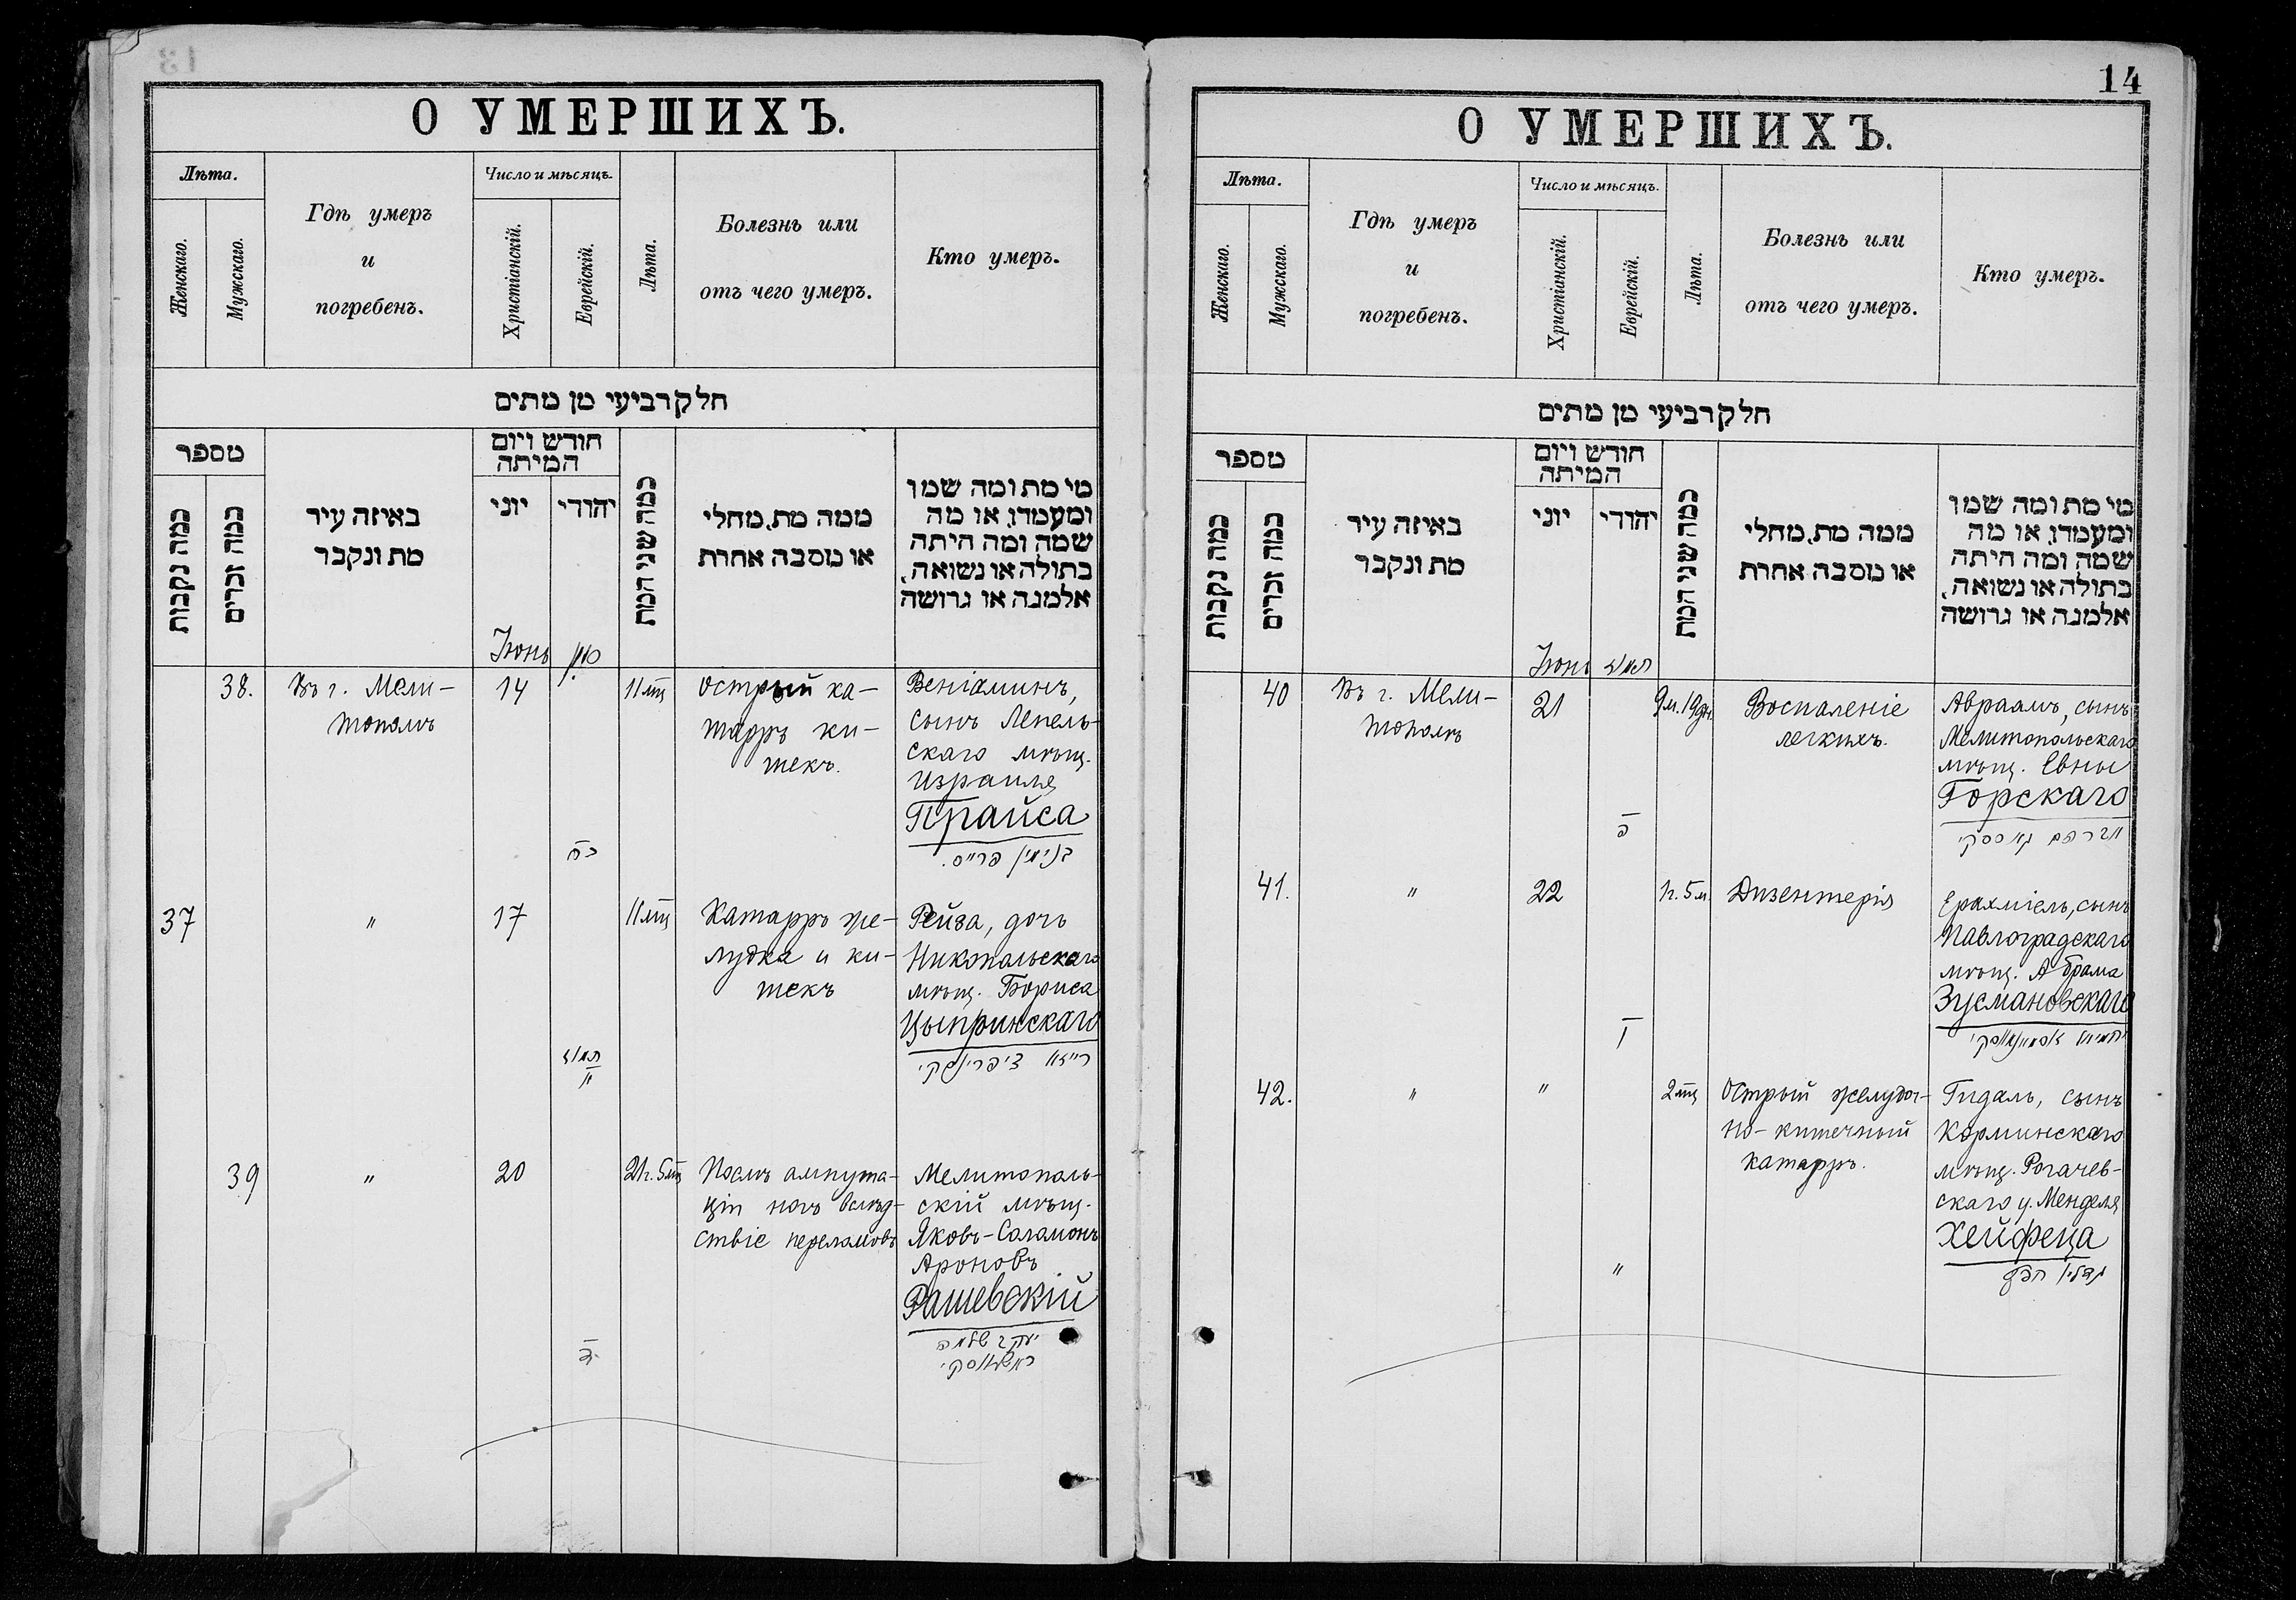 О УМЕРШИХЪ.
Лѣта.
Гдѣ умеръ
и
погребенъ.
Число и мѣсяцъ.
Женскаго.
Мужскаго.
Христіанскій.
Еврейскій.
Лѣта.
Болезнь или
отъ чего умеръ.
Кто умеръ.
חלק רביעי מן מתים
מספר
כמה נקבות
כמה זכרים
באיזה עיר
מת ונקבר
חודש ויום
המיתה
יוני
יהודי
כמה שני המת
ממה מת, מחלי
או מסבה אחרת
מי מת ומה שמו
ומעמדו, או מה
שמה ומה היתה
בתולה או נשואה,
אלמנה או גרושה
Іюнь
סיון
38.
Въ г. Мели-
тополѣ
14
כח
11 мѣц
Острый ка-
тарръ ки-
шекъ.
Веніаминъ,
сынъ Лепель-
скаго мѣщ.
Израиля
Прайса
בנימין פרייס.
37
"
17
תמוז
11 мѣц
Катарръ же-
лудка и ки-
шекъ
Рейза, дочь
Никопольскаго
мѣщ. Бориса
Цыпринскаго
רייזא ציפרינסקי
39
"
20
21 г. 5 мц
Послѣ ампута-
ціи ногъ вслѣд-
ствіе переломовъ
Мелитополь-
скій мѣщ.
Яковъ-Соломонъ
Ароновъ
Рашевскій
יעקב שלמה
ראשעווסקי
14
О УМЕРШИХЪ.
Лѣта.
Гдѣ умеръ
и
погребенъ.
Число и мѣсяцъ.
Женскаго.
Мужскаго.
Христіанскій.
Еврейскій.
Лѣта.
Болезнь или
отъ чего умеръ.
Кто умеръ.
חלק רביעי מן מתים
מספר
כמה נקבות
כמה זכרים
באיזה עיר
מת ונקבר
חודש ויום
המיתה
יוני
יהודי
כמה שני המת
ממה מת, מחלי
או מסבה אחרת
מי מת ומה שמו
ומעמדו, או מה
שמה ומה היתה
בתולה או נשואה,
אלמנה או גרושה
Іюнь
תמוז
40
Въ г. Мели-
тополѣ
21
ה
9 м. 19 дн.
Воспаленіе
легкихъ.
Авраамъ, сынъ
Мелитопольскаго
мѣщ. Евны
Горскаго
אברהם גארסקי
41.
"
22
ו
1 г. 5 м.
Дизентерія
Ерахміель, сынъ
Павлоградскаго
мѣщ. Абрама
Зусмановскаго
42.
"
"
"
2 мц
Острый желудоч-
но-кишечный
катарръ.
Гидаль, сынъ
Корминскаго
мѣщ. Рогачев-
скаго у. Менделя
Хейфеца
גדליי חפץ